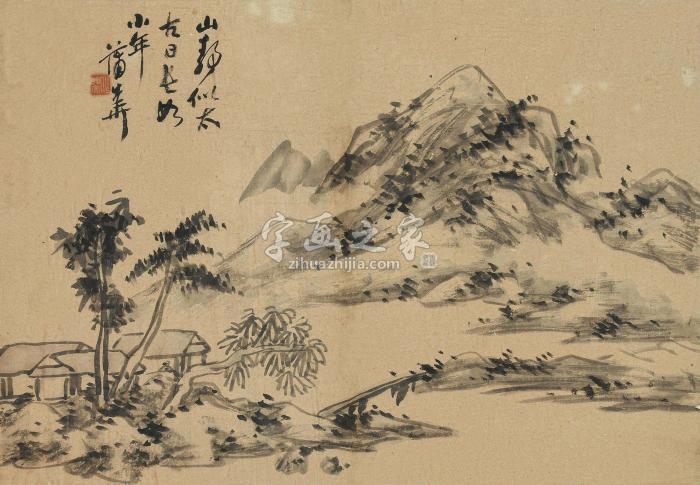 山静似太
古日長如
小年
蒲華
字画之家
zihuazhijia.com